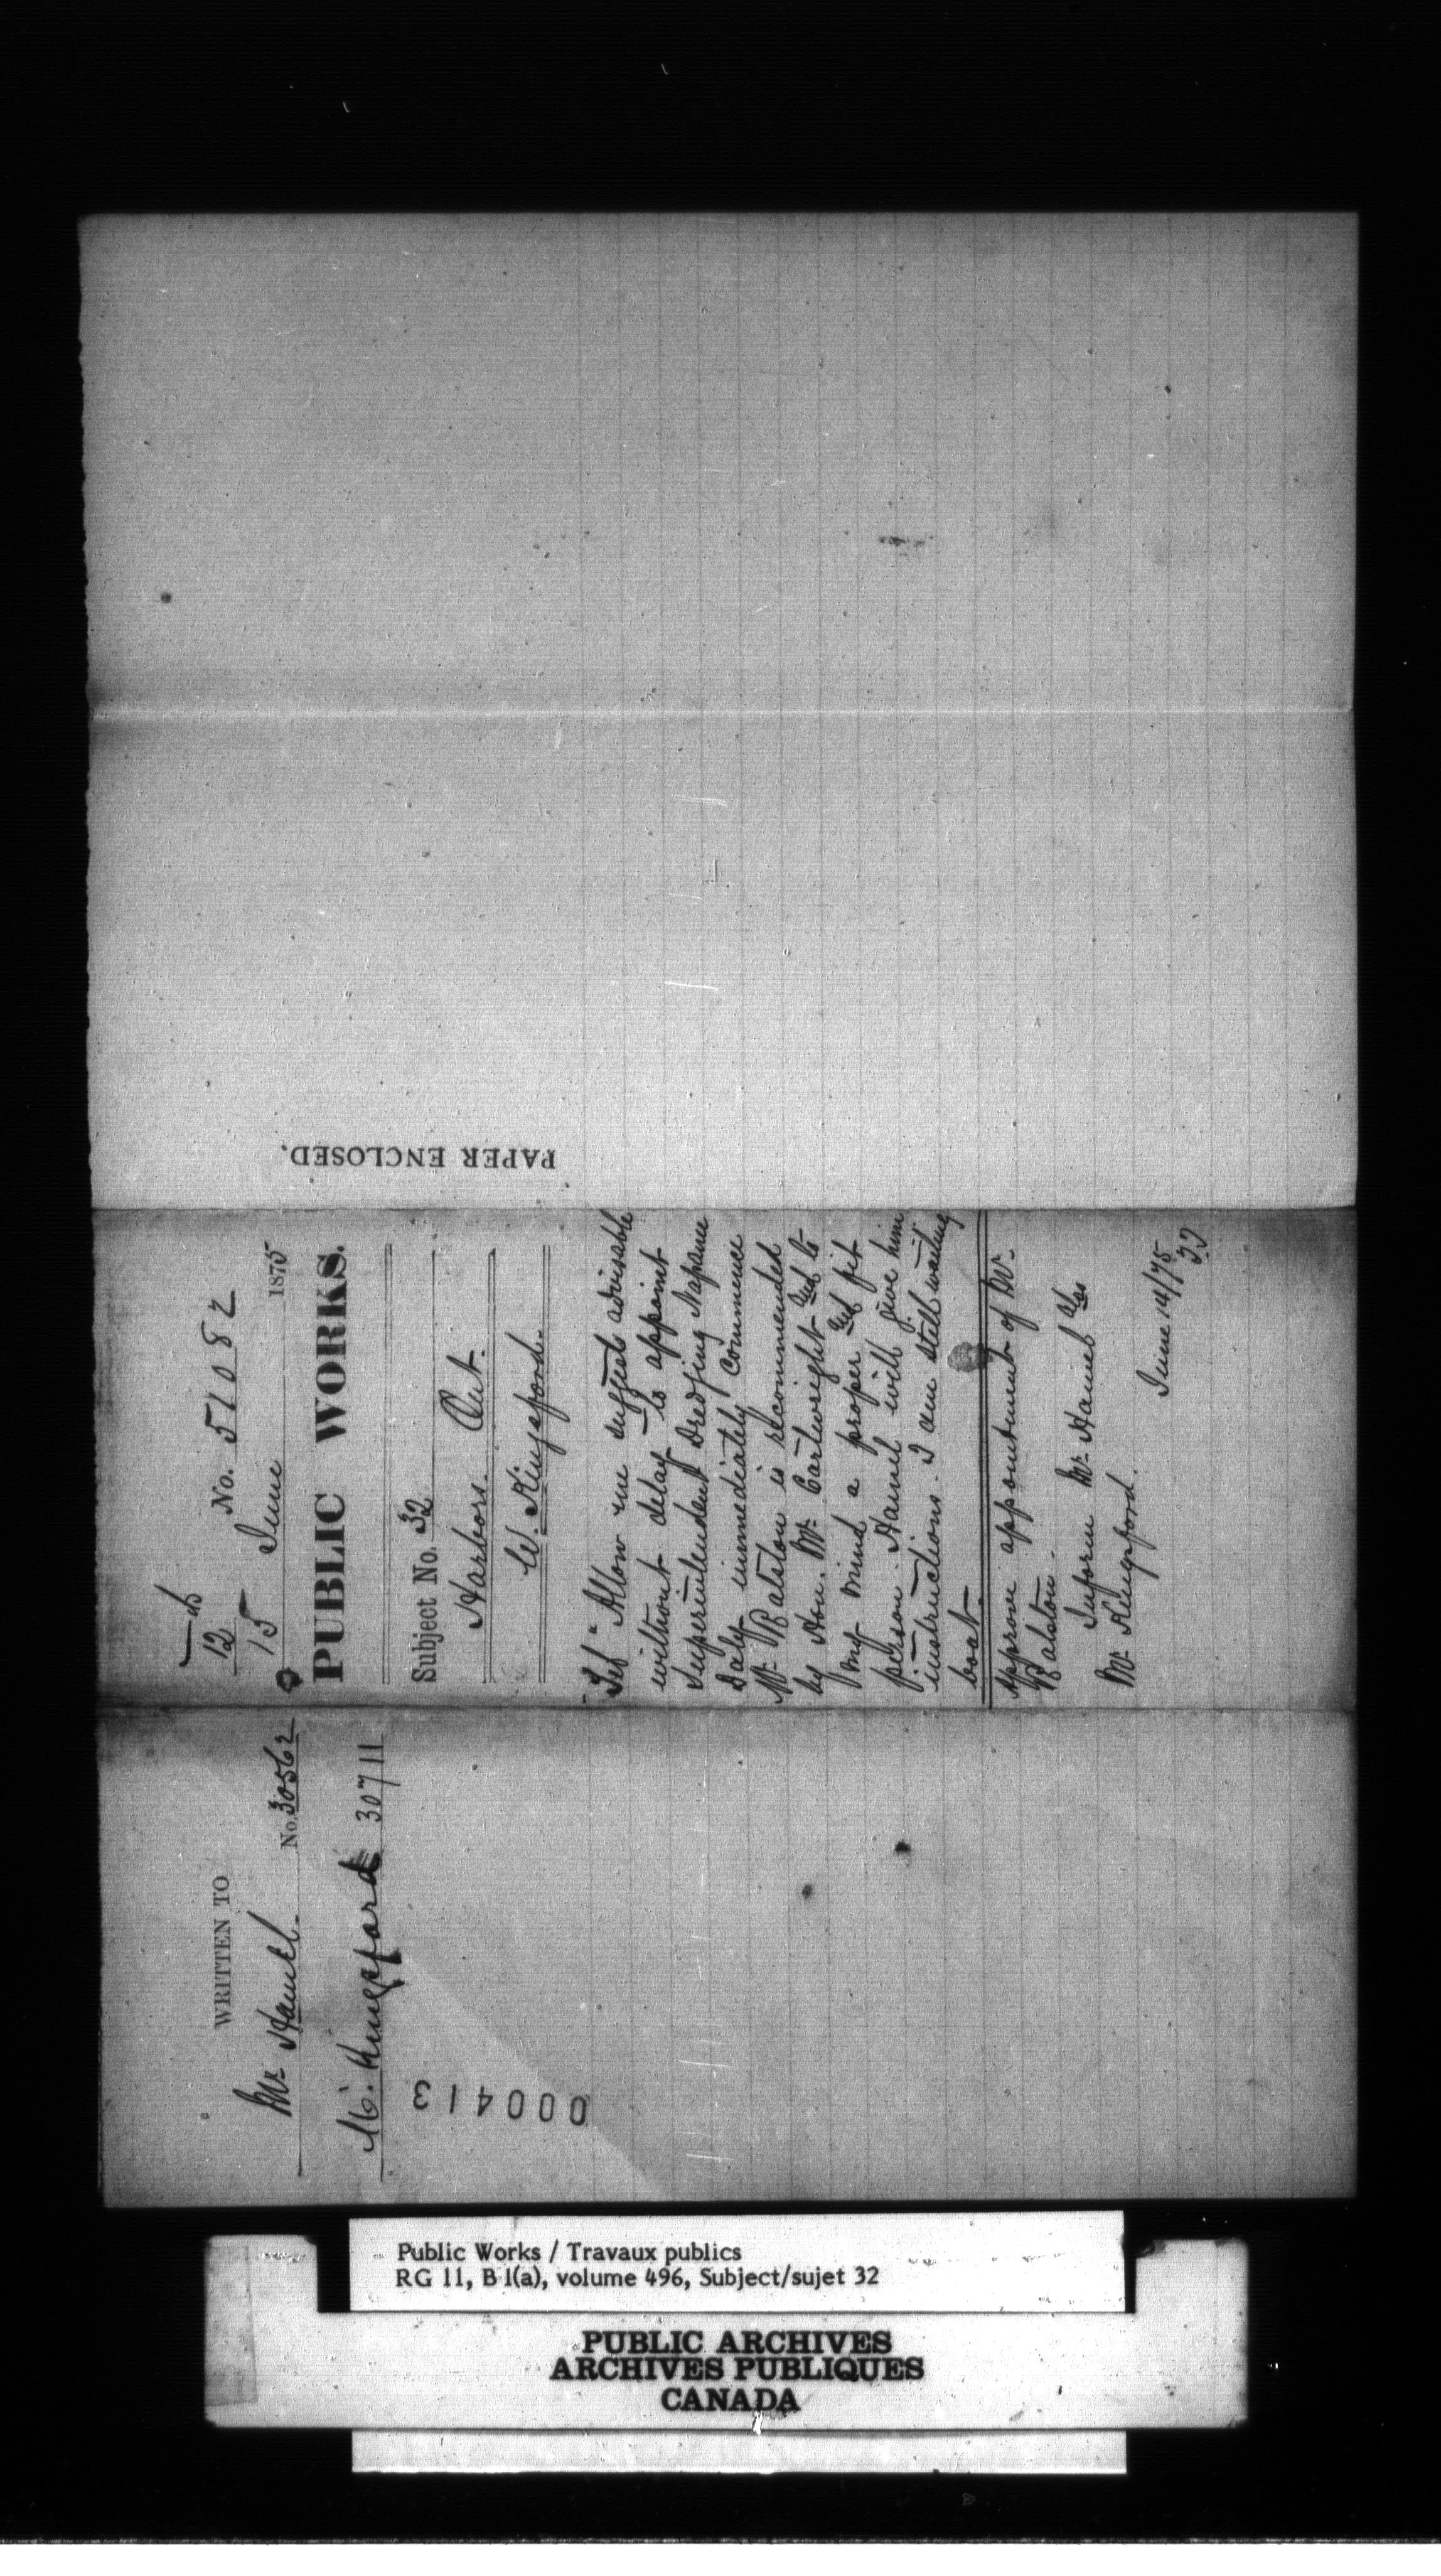 12
15
No. 51082
June 1875
PUBLIC WORKS.
Subject No. 32
Harbors. Ont.
W. Kingsford.
Tel "Allow me suggest advisable
without delay to appoint
Superintendent Dredging Napanee
Daly immediately commence
Mr. Balston is recommended
by Hon. Mr. Cartwright and to
my mind a proper and fit
person. Hamel will give him
instructions. I am still waiting
boat.
Approve appointment of Mr.
Balston.
Inform Mr. Hamel also
Mr. Kingsford.
June 14/75
PAPER ENCLOSED.
WRITTEN TO
Mr. Hamel. No. 30562
Kingsford 30711
000413
Public Works / Travaux publics
RG 11, B 1(a), volume 496, Subject/sujet 32
PUBLIC ARCHIVES
ARCHIVES PUBLIQUES
CANADA